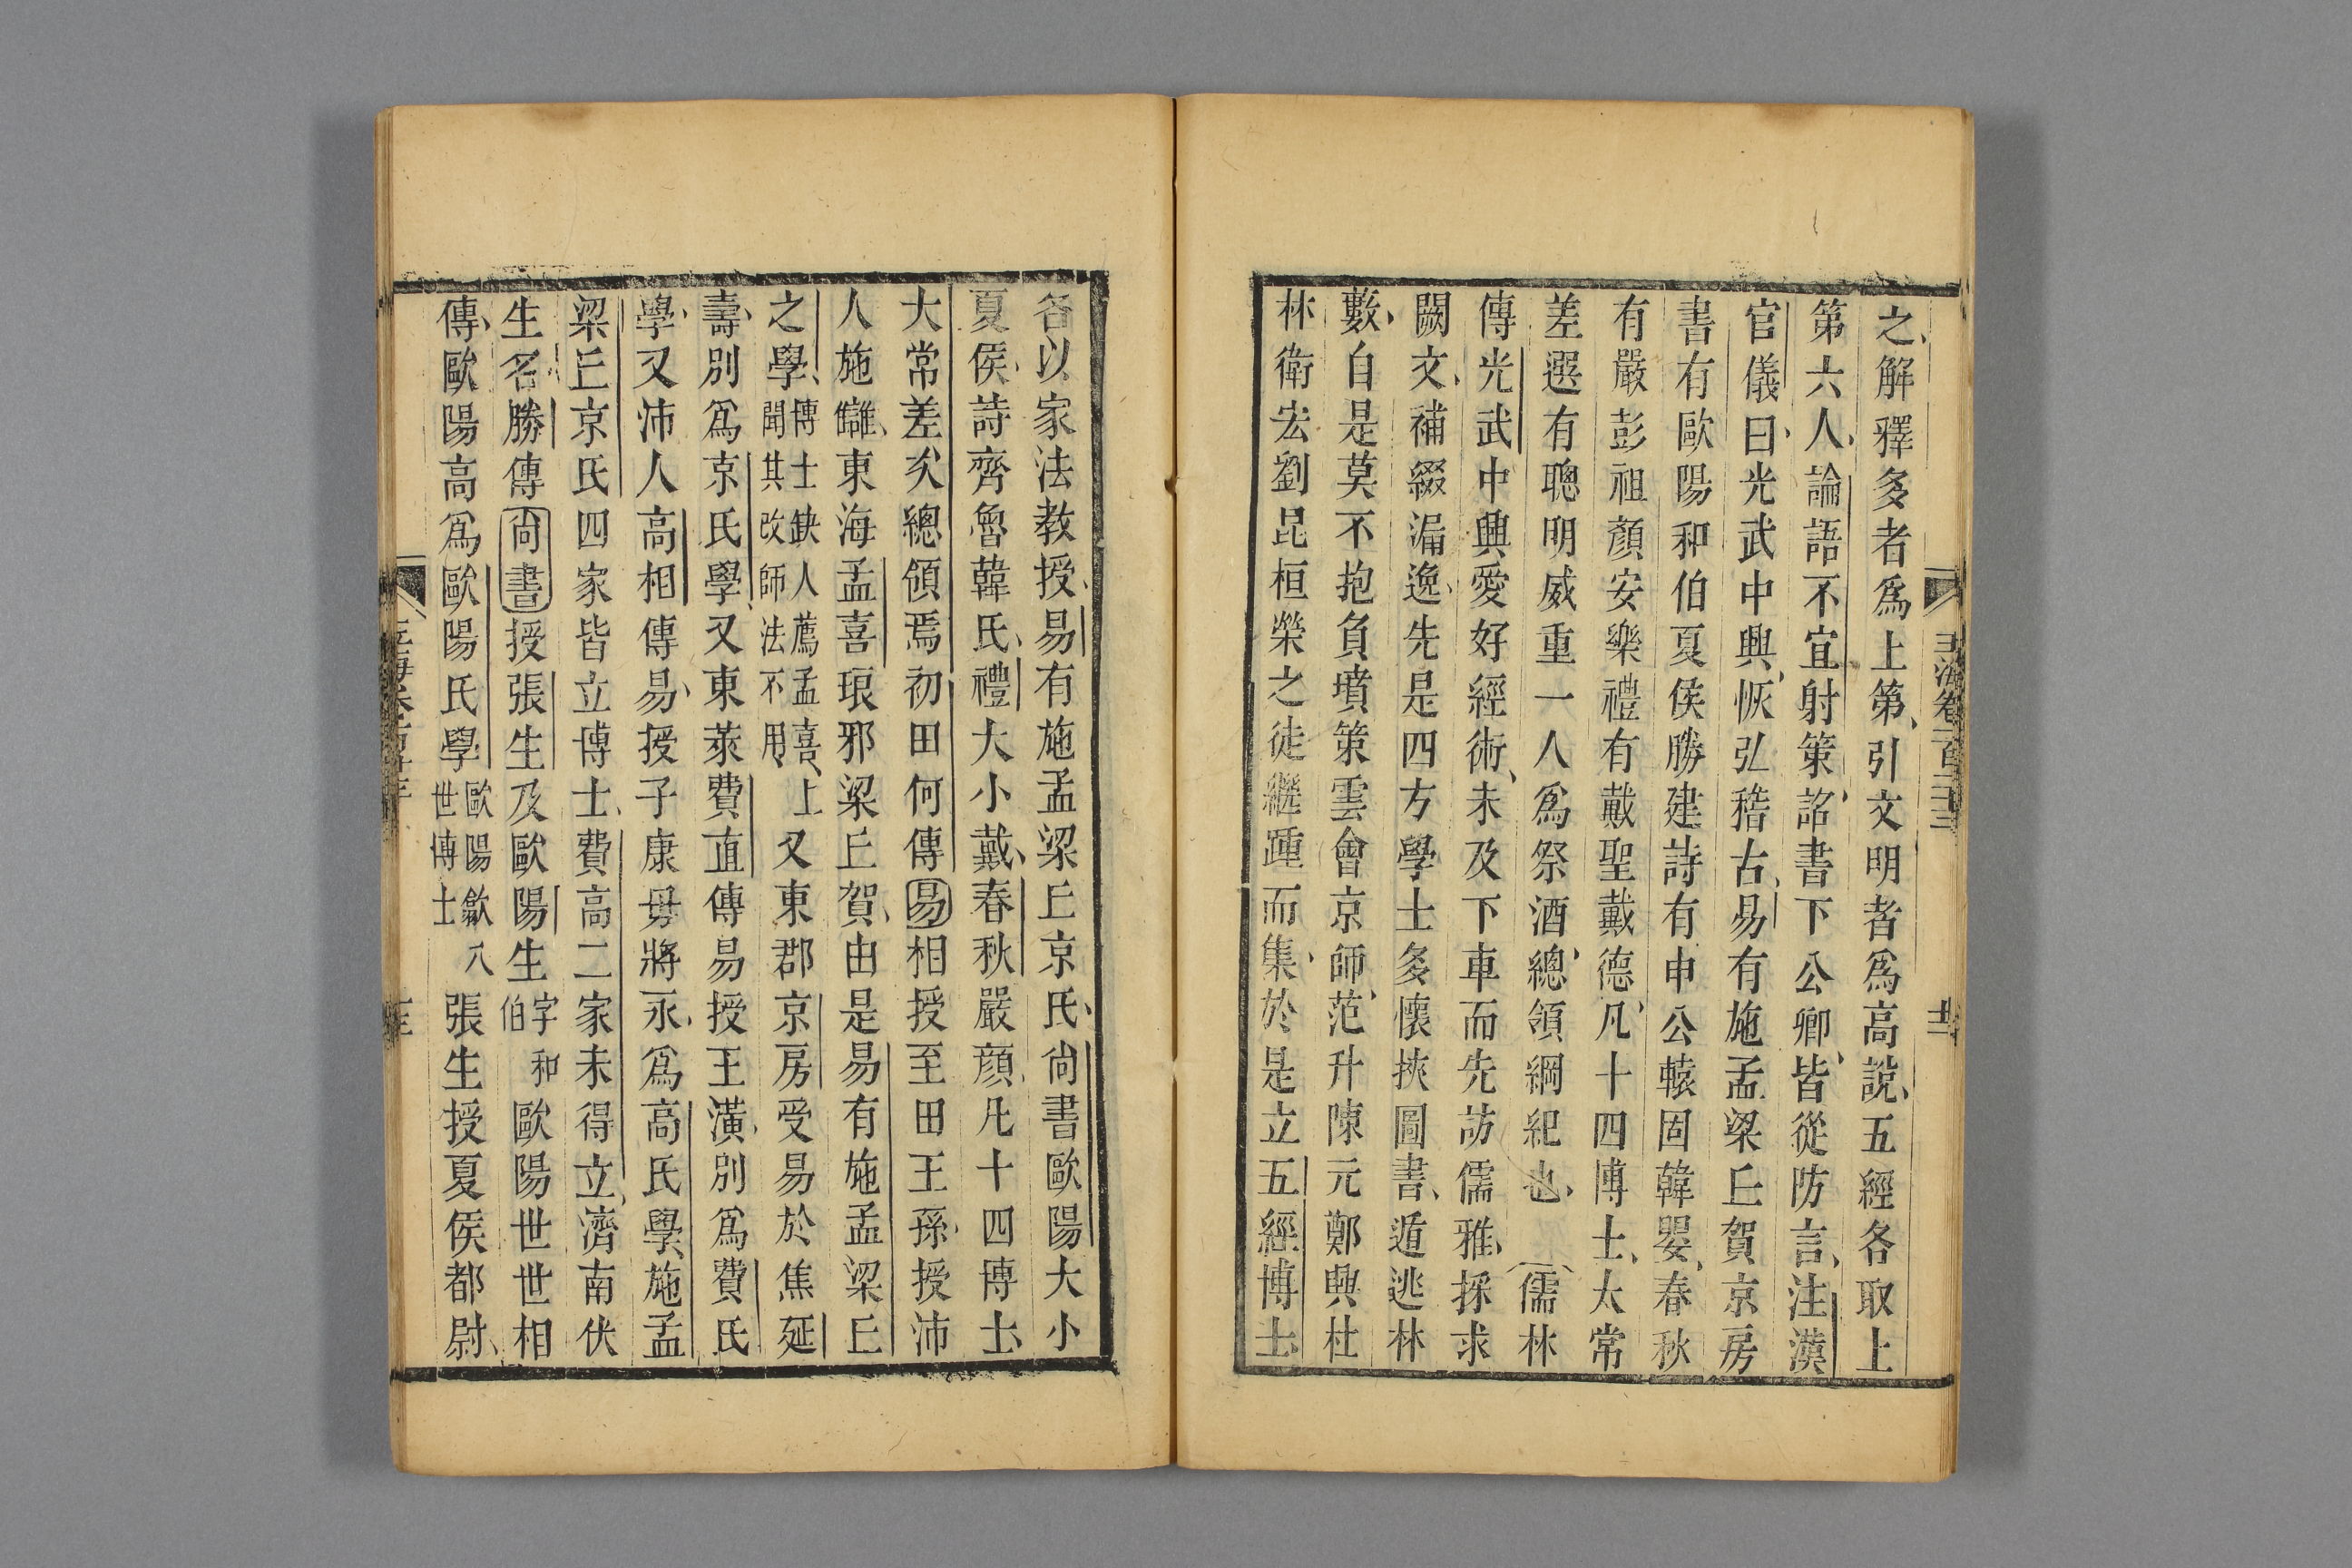 之解釋多者爲上第引文明者爲高說五經各取上
第六人論語不宜射策詔書下公卿皆從防言注漢
官儀曰光武中興恢弘稽古易有施孟梁丘賀京房
書有歐陽和伯夏侯勝建詩有申公轅固韓嬰春秋
有嚴彭祖顏安樂禮有戴聖戴德凡十四博士太常
差選有聰明威重一人爲祭酒總領綱紀也儒林
傳光武中興愛好經術未及下車而先訪儒雅採求
闕文補綴漏逸先是四方學士多懷挾圖書遁逃林
藪自是莫不抱負墳策雲會京師范升陳元鄭興杜
林衛宏劉昆桓榮之徒繼踵而集於是立五經博士
各以家法教授易有施孟梁丘京氏尚書歐陽大小
夏侯詩齊魯韓氏禮大小戴春秋嚴顏凡十四博士
大常差次總領焉初田何傳易相授至田王孫授沛
人施讎東海孟喜琅邪梁丘賀由是易有施孟梁丘
之學博士缺人薦孟喜上聞其改師法不用又東郡京房受易於焦延
壽別爲京氏學又東萊費直傳易授王璜別爲費氏
學又沛人高相傳易授子康毋將永爲高氏學施孟
梁丘京氏四家皆立博士費高二家未得立濟南伏
生名勝傳尚書授張生及歐陽生字和伯歐陽世世相
傳歐陽高爲歐陽氏學歐陽歙八世博士張生授夏侯都尉